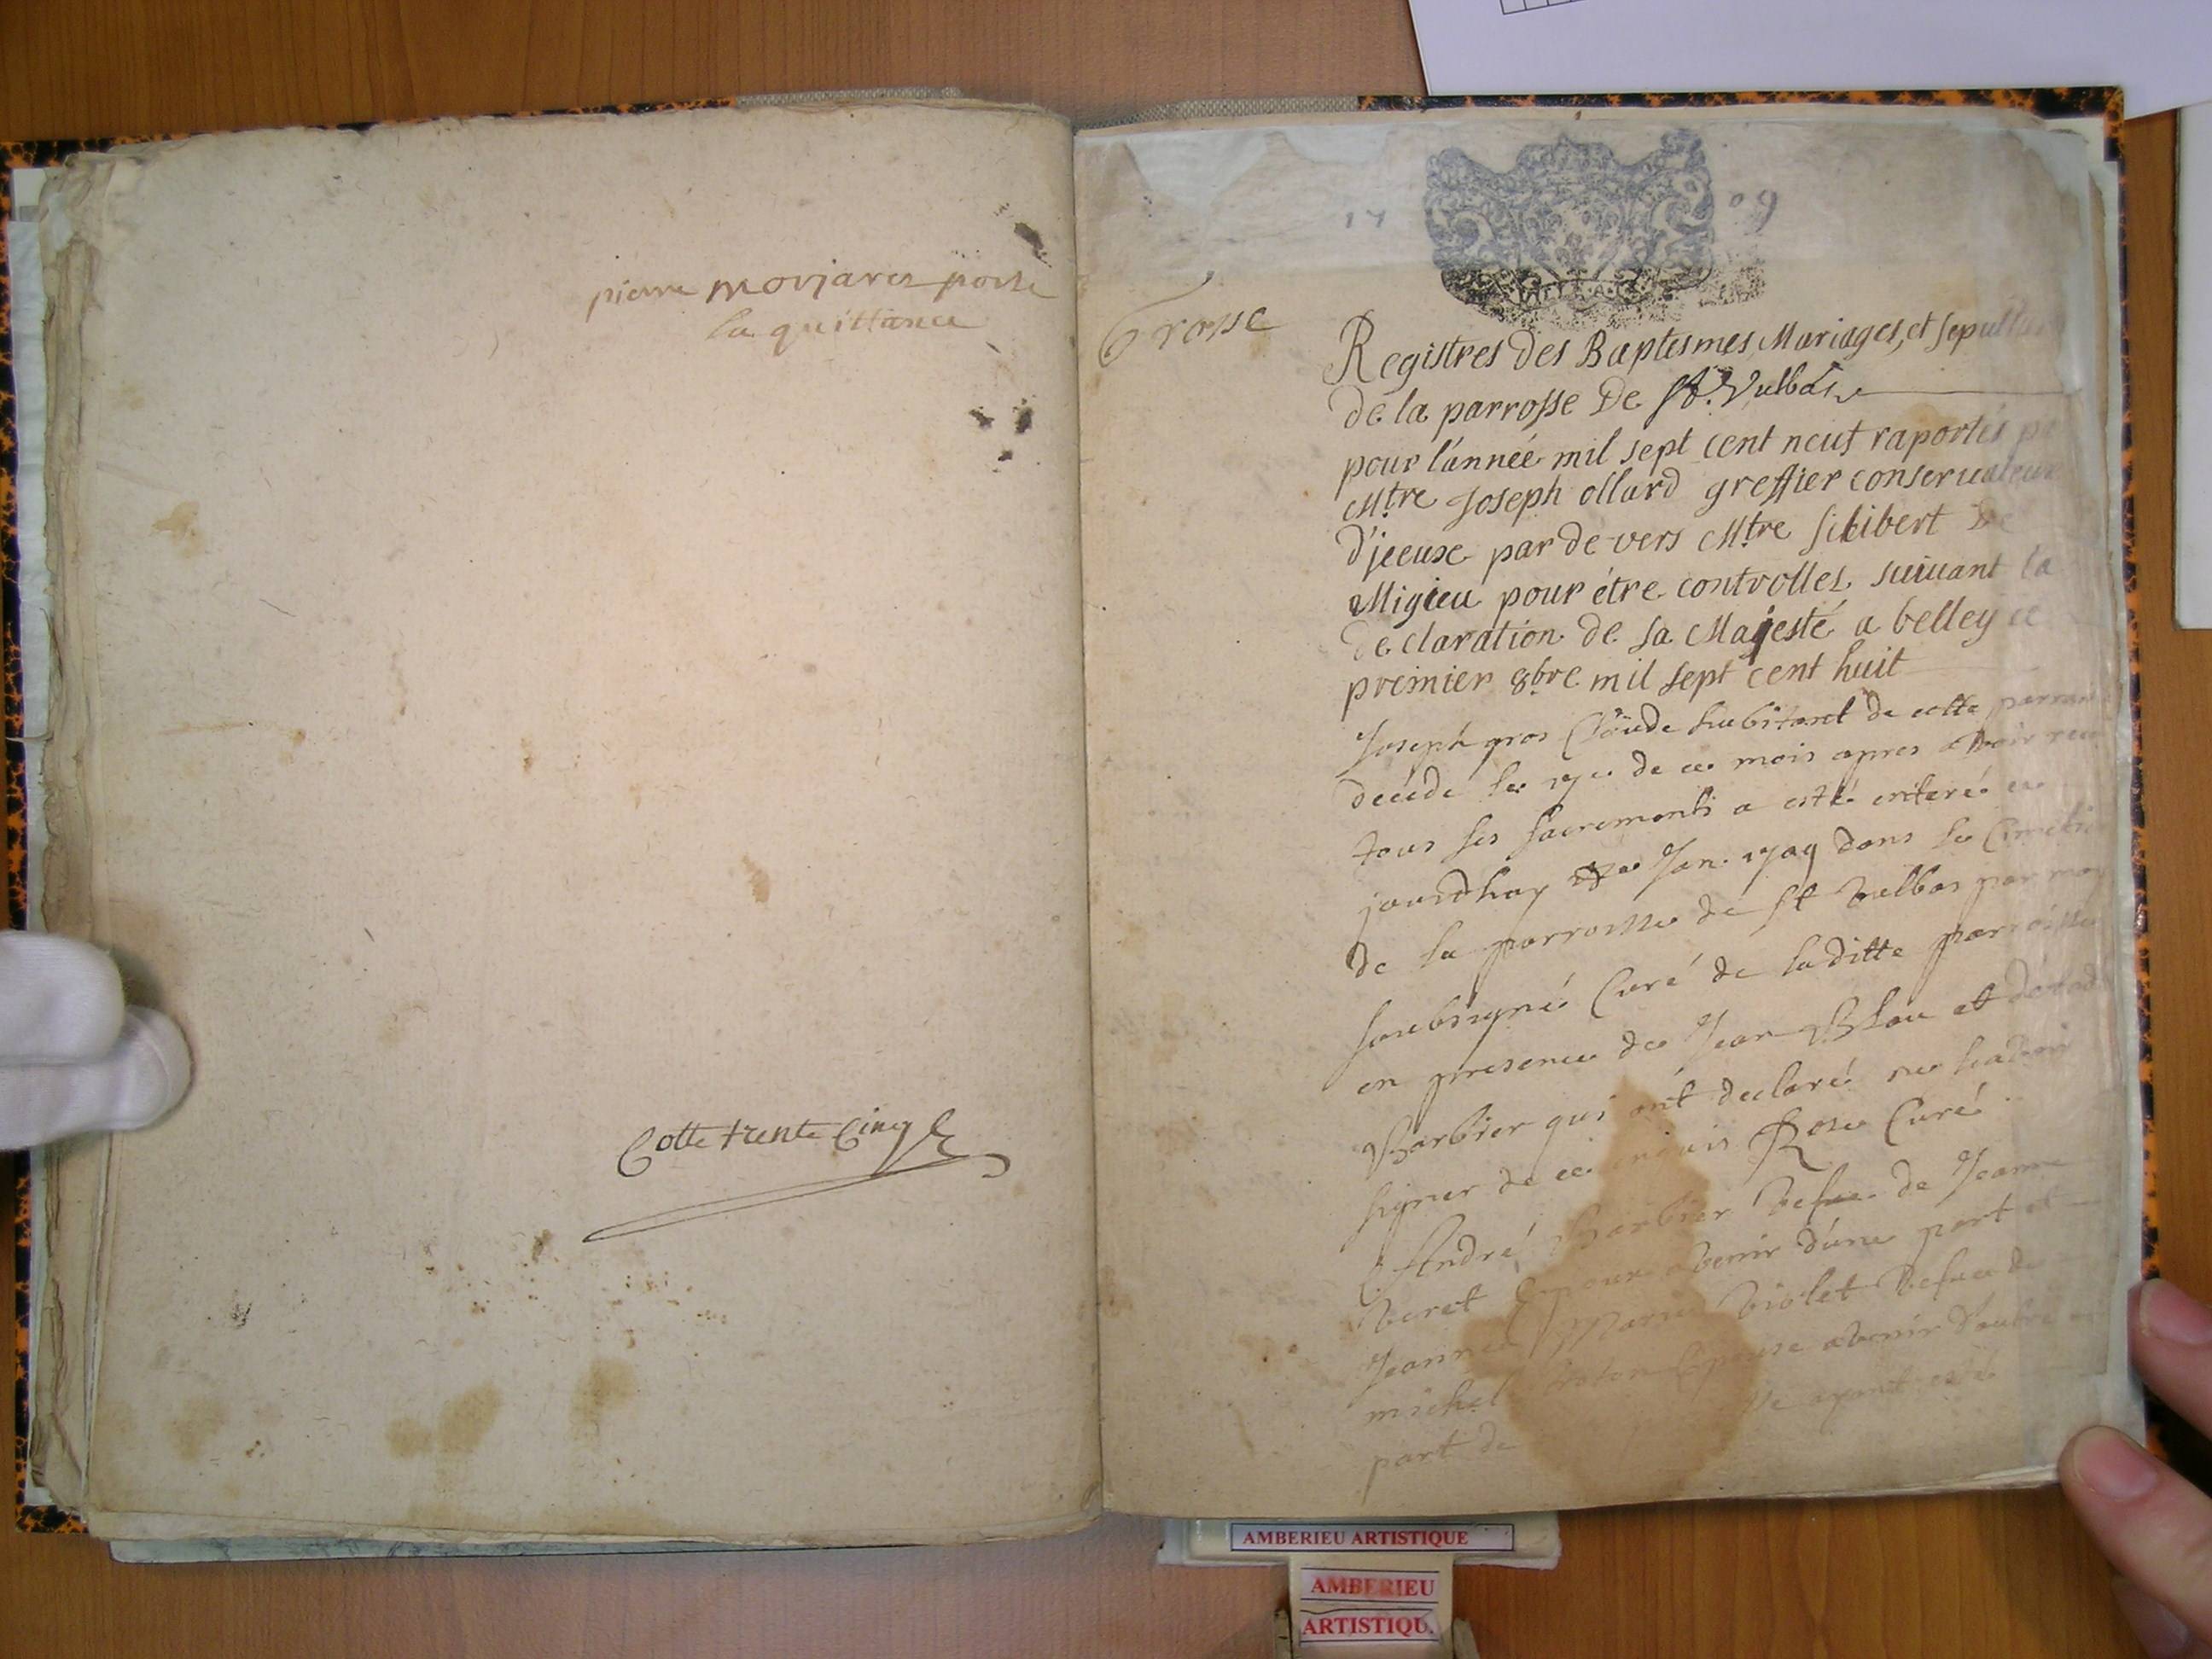 pierre morjares porte
la quittance
Cotte trente Cinq
17 09
Grosse
Registres des Baptesmes, Mariages, et Sepultur
de la parrosse De St. Vulbas
pour l'année mil sept cent neuf raportés pa
Mtre Joseph ollard greffier conseruateur
d'jceuse par de vers Mtre filibert De
Migieu pour étre controlles suiuant la
declaration de sa Majesté a belley ce
premier 8bre mil sept cent huit
Joseph gros Claude habitant de cette parrois
decedé le de ce mois apres avoir receu
tous ses sacrements a esté enteré ce
jourdhuy Jan. 1709 dans le Cimetie
de la parroisse de St Vulbas par moy
soubsigné Curé de laditte parroisse
en presence de Jean et
Barbier qui ont declaré ne
signer de ce enquis Rose Curé
André Barbier vefue de Jeanne
veret Epoux avenir d'une part et
Jeanne Marie violet vefue de
michel Epouse avenir d'autre
part de ayant esté
AMBERIEU ARTISTIQUE
AMBERIEU
ARTISTIQU